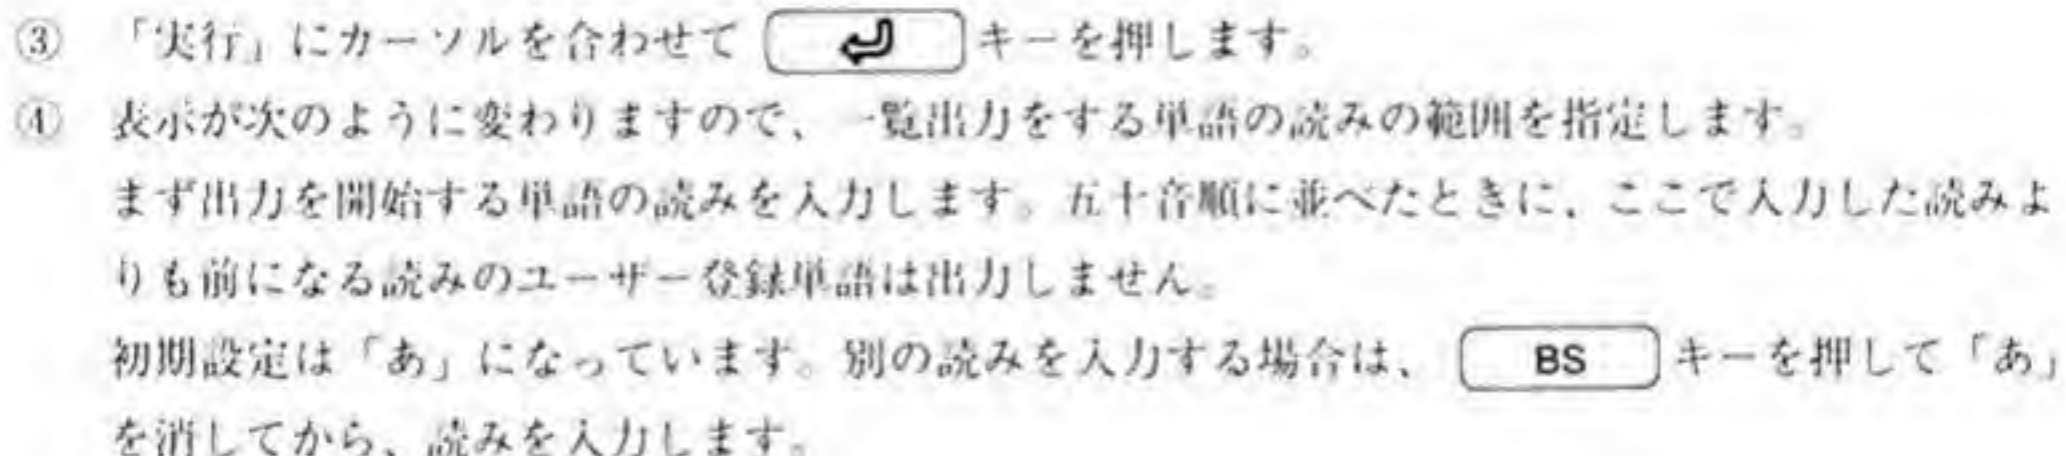 ③ 「実行」にカーソルを合わせて ⏎ キーを押します。
④ 表示が次のように変わりますので、一覧出力をする単語の読みの範囲を指定します。
まず出力を開始する単語の読みを入力します。五十音順に並べたときに、ここで入力した読みよ
りも前になる読みのユーザー登録単語は出力しません。
初期設定は「あ」になっています。別の読みを入力する場合は、 BS キーを押して「あ」
を消してから、読みを入力します。